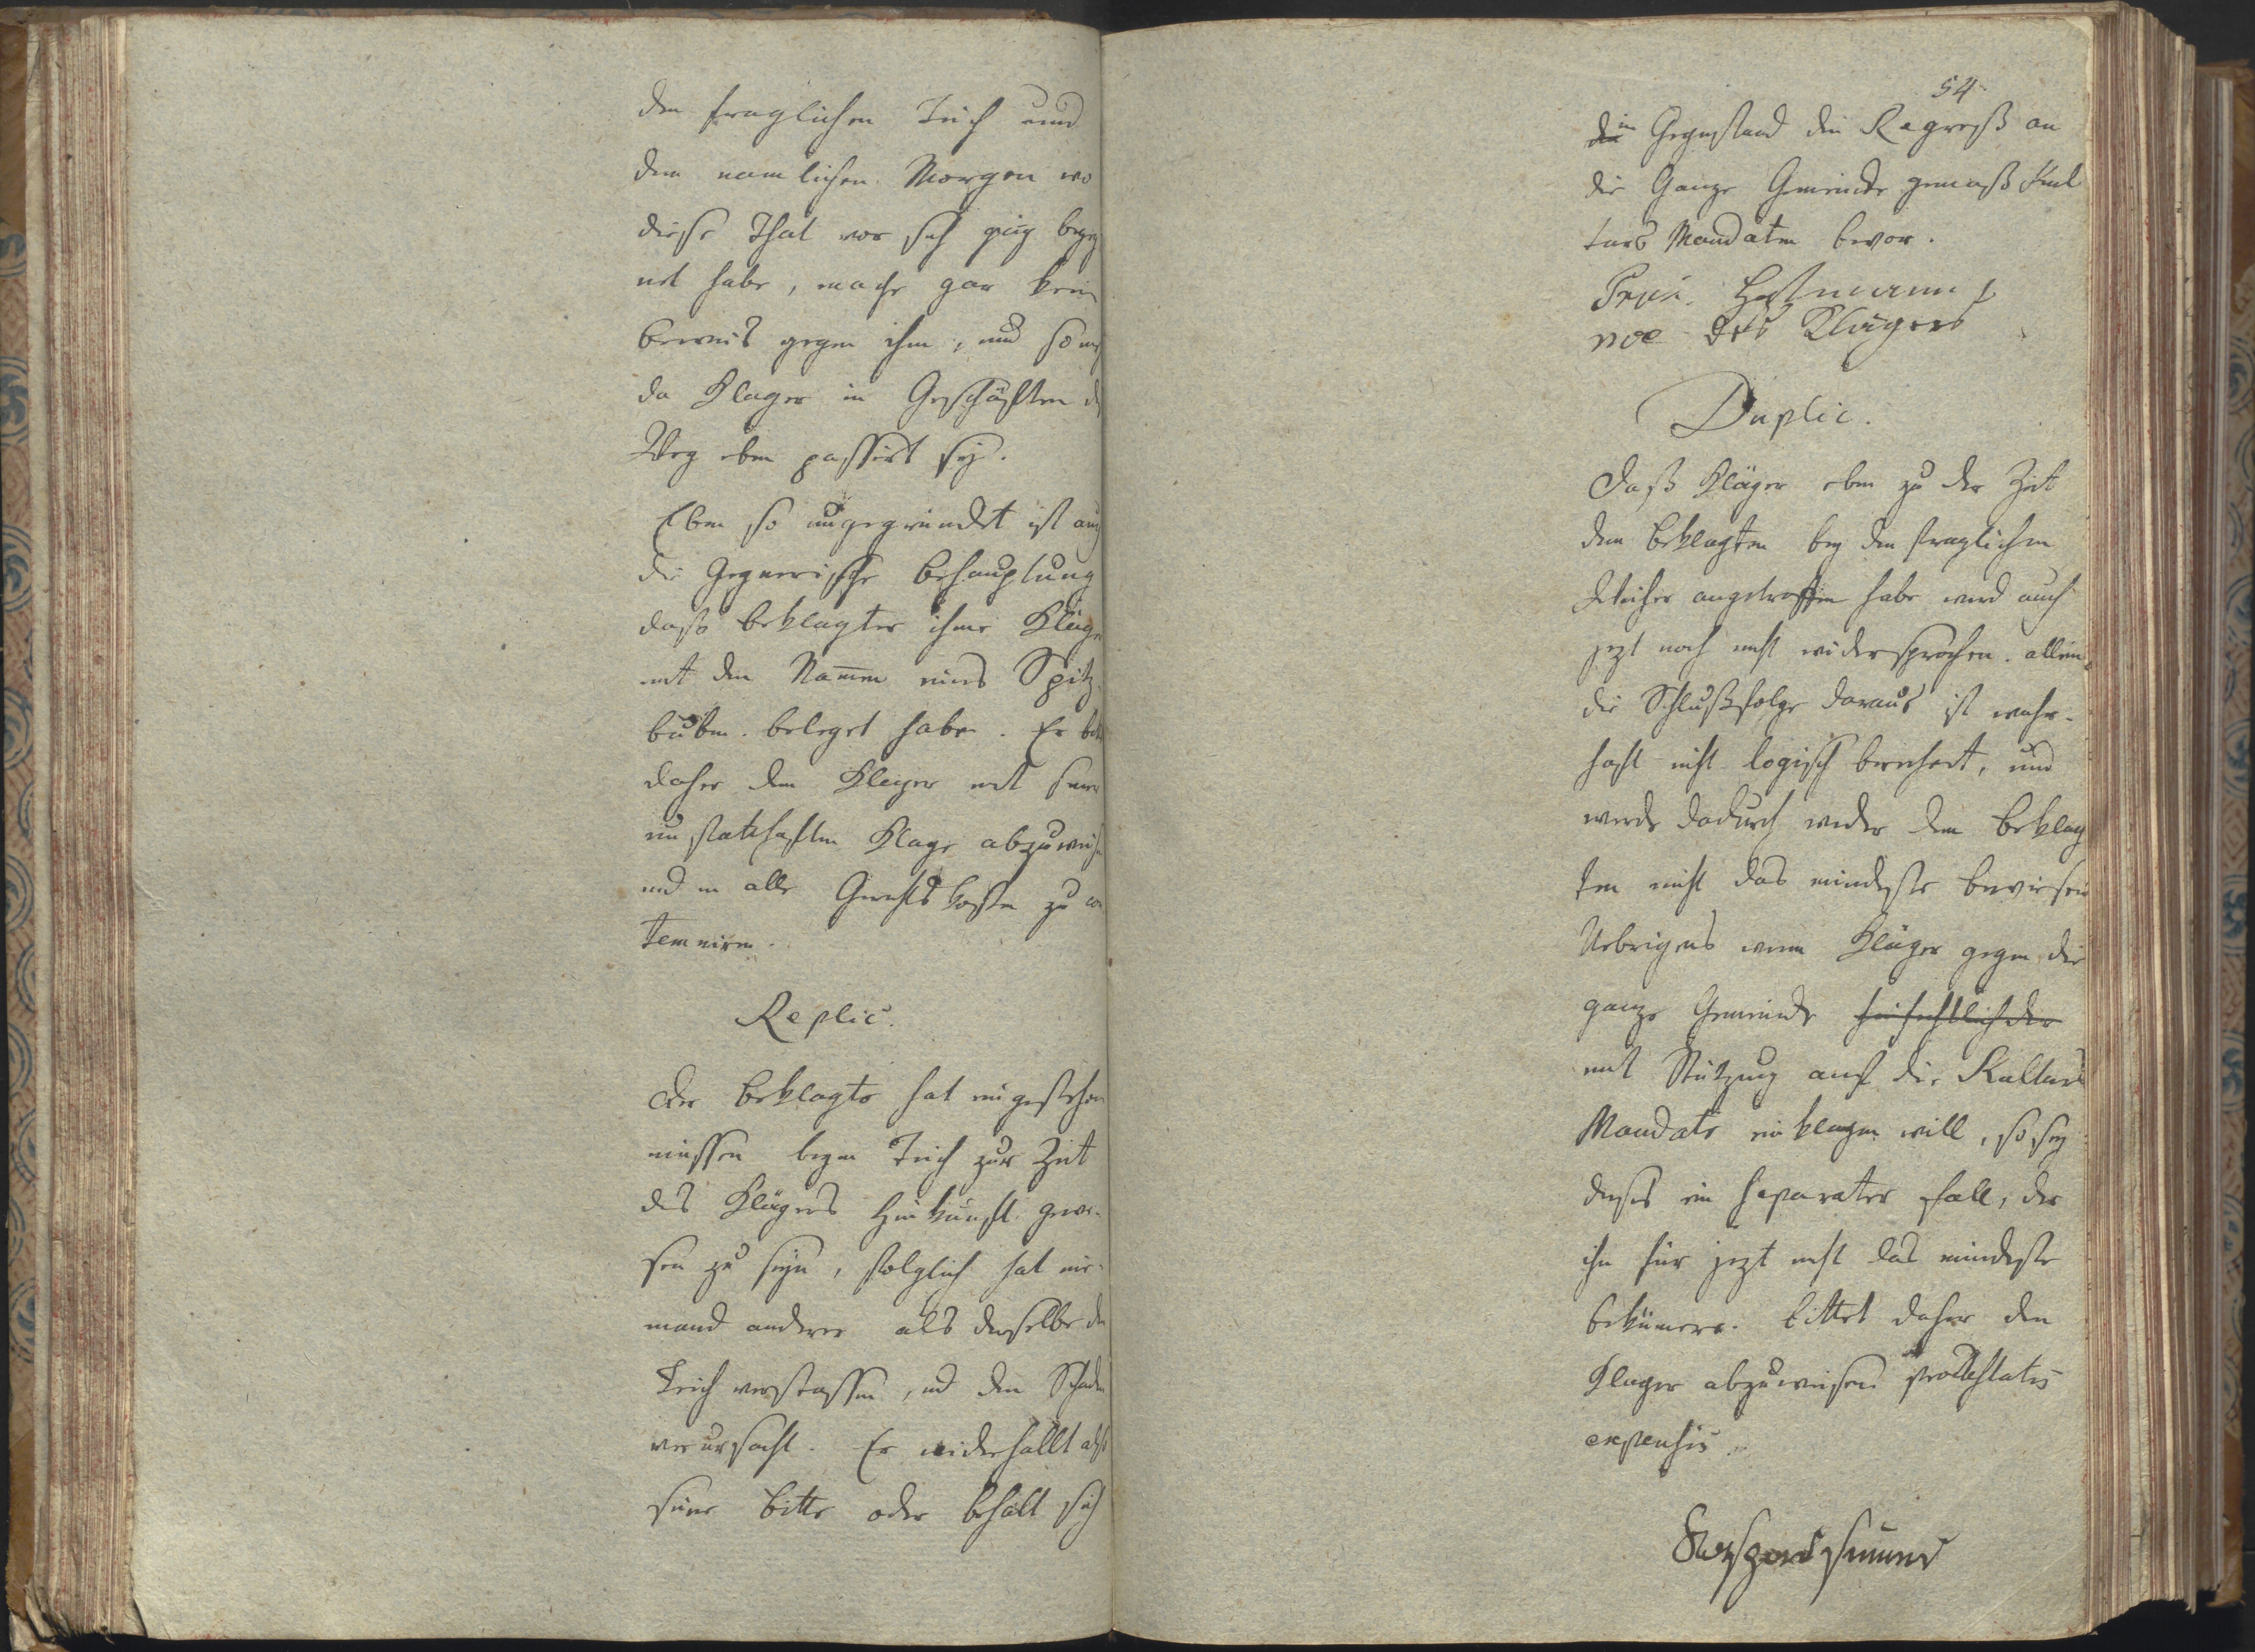 den fraglichen Teich und
dem namlichen Morgen wo
diese That vor sich ging begeg
net habe, mache gar kein
beweis gegen ihm, und
da Klager in Geschäften
Weg eben passirt sey.
Eben so ungegrundet ist auch
die Gegnerische behauptung
daß beklagter ihme Kläger
mit den Namen eines Spitz
buben beleget habe. Er bitte
daher den Klager mit seiner
un statthaften Klage abzuweisen
und in alle Gerichts kosten zu con
temniren.
Replic.
Der beklagte hat eingestehen
müssen beym Teich zur Zeit
des Klägers Hinkunft gewe-
sen zu seyn, folglich hat nie-
mand anderer als derselbe den
Teich verstossen, und den Schaden
verursacht. Er widerhollt also
seine bitte oder behalt sich
54
im Gegenstand den Regreß an
die Ganze Gemeinde gemäß Kul
turs Mandaten bevor.
noe des Klägers
Duplic.
Daß Kläger eben zu der Zeit
den beklagten bey den fraglichen
Weiher angetroffen habe wird auch
jezt noch nicht widersprochen. allein
die Schlußfolge daraus ist wahr-
haft nicht logisch, und
werde dadurch wider den beklag
ten nicht das mindeste bewiesen
Uebrigens wenn Kläger gegen die
ganze Gemeinde hinsichtlich der
mit Stützung auf die Kulturs
Mandate einklagen will, so sey
dieses ein separater fall, der
ihn für jezt nicht das mindeste
bekümere. bittet daher den
Klager abzuweisen
expensis.